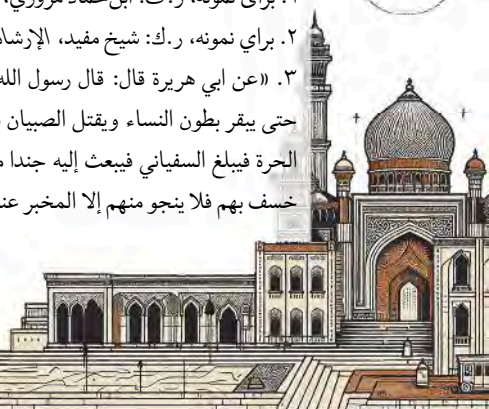 ۲. براي نمونه، ر.ك: شيخ مفيد، الإرشاد
۳. «عن ابي هريرة قال: قال رسول الله
حتى يبقر بطون النساء ويقتل الصبيان
الحرة فيبلغ السفياني فيبعث إليه جندا
خسف بهم فلا ينجو منهم إلا المخبر